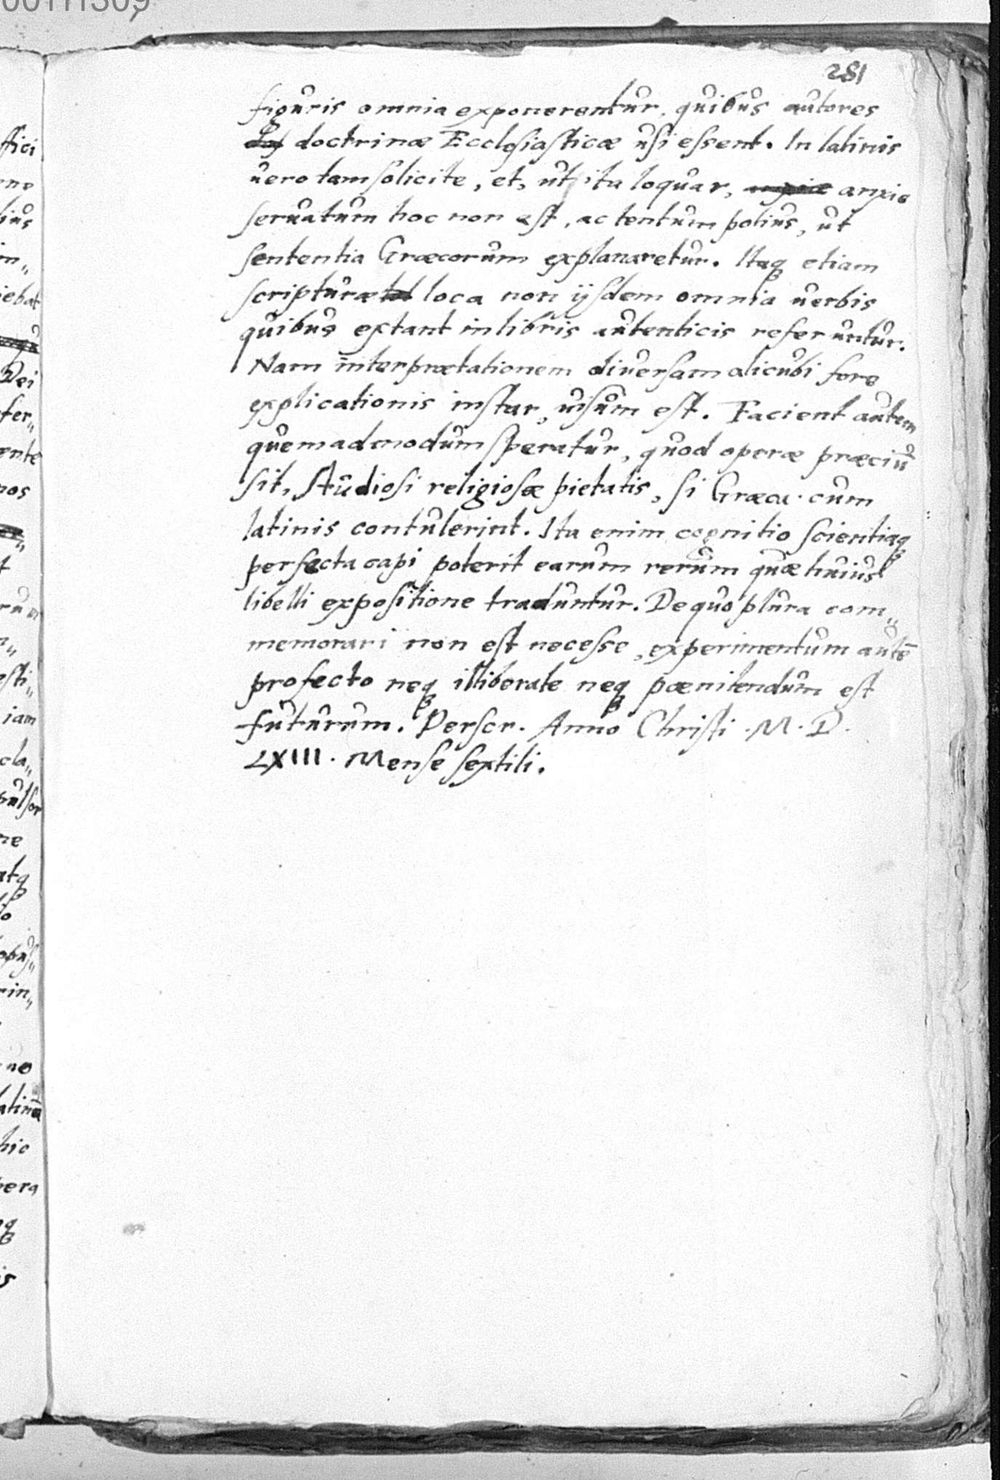 00111309
281
figuris omnia exponerentur, quibus autores
doctrinæ Ecclesiasticæ usi essent. In latinis
vero tam solicite, et, ut ita loquar, anxie
servatum hoc non est, ac tentum potius, ut
sententia Græcorum explanaretur. Itaq etiam
scripturæ loca non ijsdem omnia verbis
quibus extant in libris autenticis referuntur.
Nam interprætationem diversam alicubi fore
explicationis instar, visum est. Facient autem
quemadmodum speratur, quod operæ præciū
sit, Studiosi religiosæ pietatis, si Græca cum
latinis contulerint. Ita enim cognitio scientiaq
perfecta capi poterit earum rerum quæ huius
libelli expositione traduntur. De quo plura com„
memorari non est necesse, experimentum autē
profecto neq illiberale neq pœnitendum est
futurum. Perscr. Anno Christi M. D.
LXIII. Mense sextili.